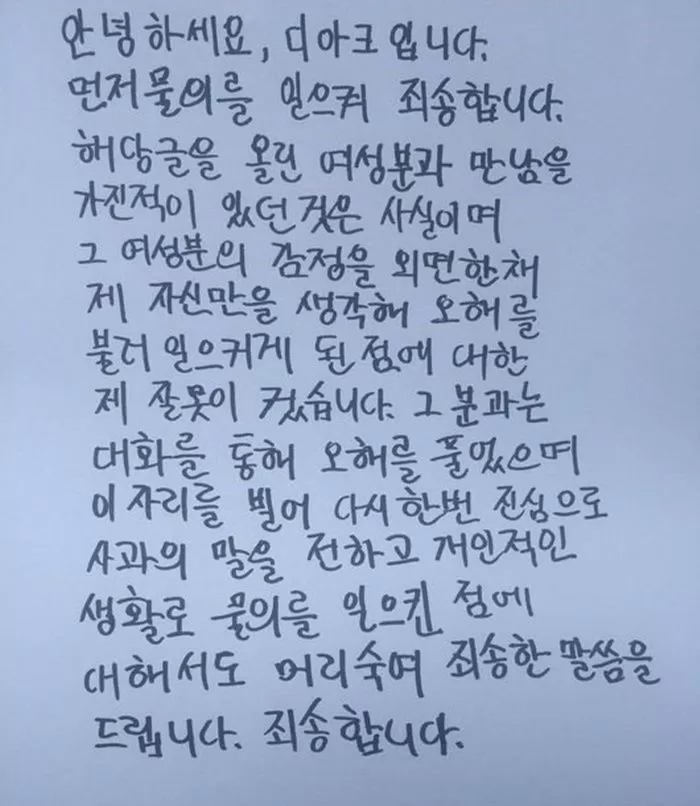 안녕하세요, 디아크입니다.
먼저 물의를 일으켜 죄송합니다.
해당글을 올린 여성분과 만남을
가진적이 있던 것은 사실이며
그 여성분의 감정을 외면한채
제 자신만을 생각해 오해를
불러 일으키게 된 점에 대한
제 잘못이 컸습니다. 그 분과는
대화를 통해 오해를 풀었으며
이 자리를 빌어 다시 한번 진심으로
사과의 말을 전하고 개인적인
생활로 물의를 일으킨 점에
대해서도 머리숙여 죄송한 말씀을
드립니다. 죄송합니다.